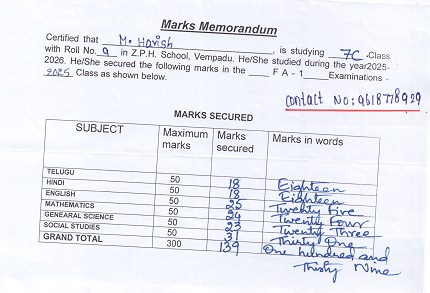 Marks Memorandum
Certified that M. Harish, is studying 7C Class
with Roll No. 9 in Z.P.H. School, Vempadu. He/She studied during the year2025-
2026. He/She secured the following marks in the ____ F A - 1 ____ Examinations -
2025 Class as shown below.
contact No: 9618778929
MARKS SECURED
SUBJECT Maximum marks Marks secured Marks in words
TELUGU 50 18 Eighteen
HINDI 50 18 Eighteen
ENGLISH 50 25 Twenty Five
MATHEMATICS 50 24 Twenty Four
GENEARAL SCIENCE 50 23 Twenty Three
SOCIAL STUDIES 50 31 Thirty One
GRAND TOTAL 300 139 One hundred and
Thirty Nine